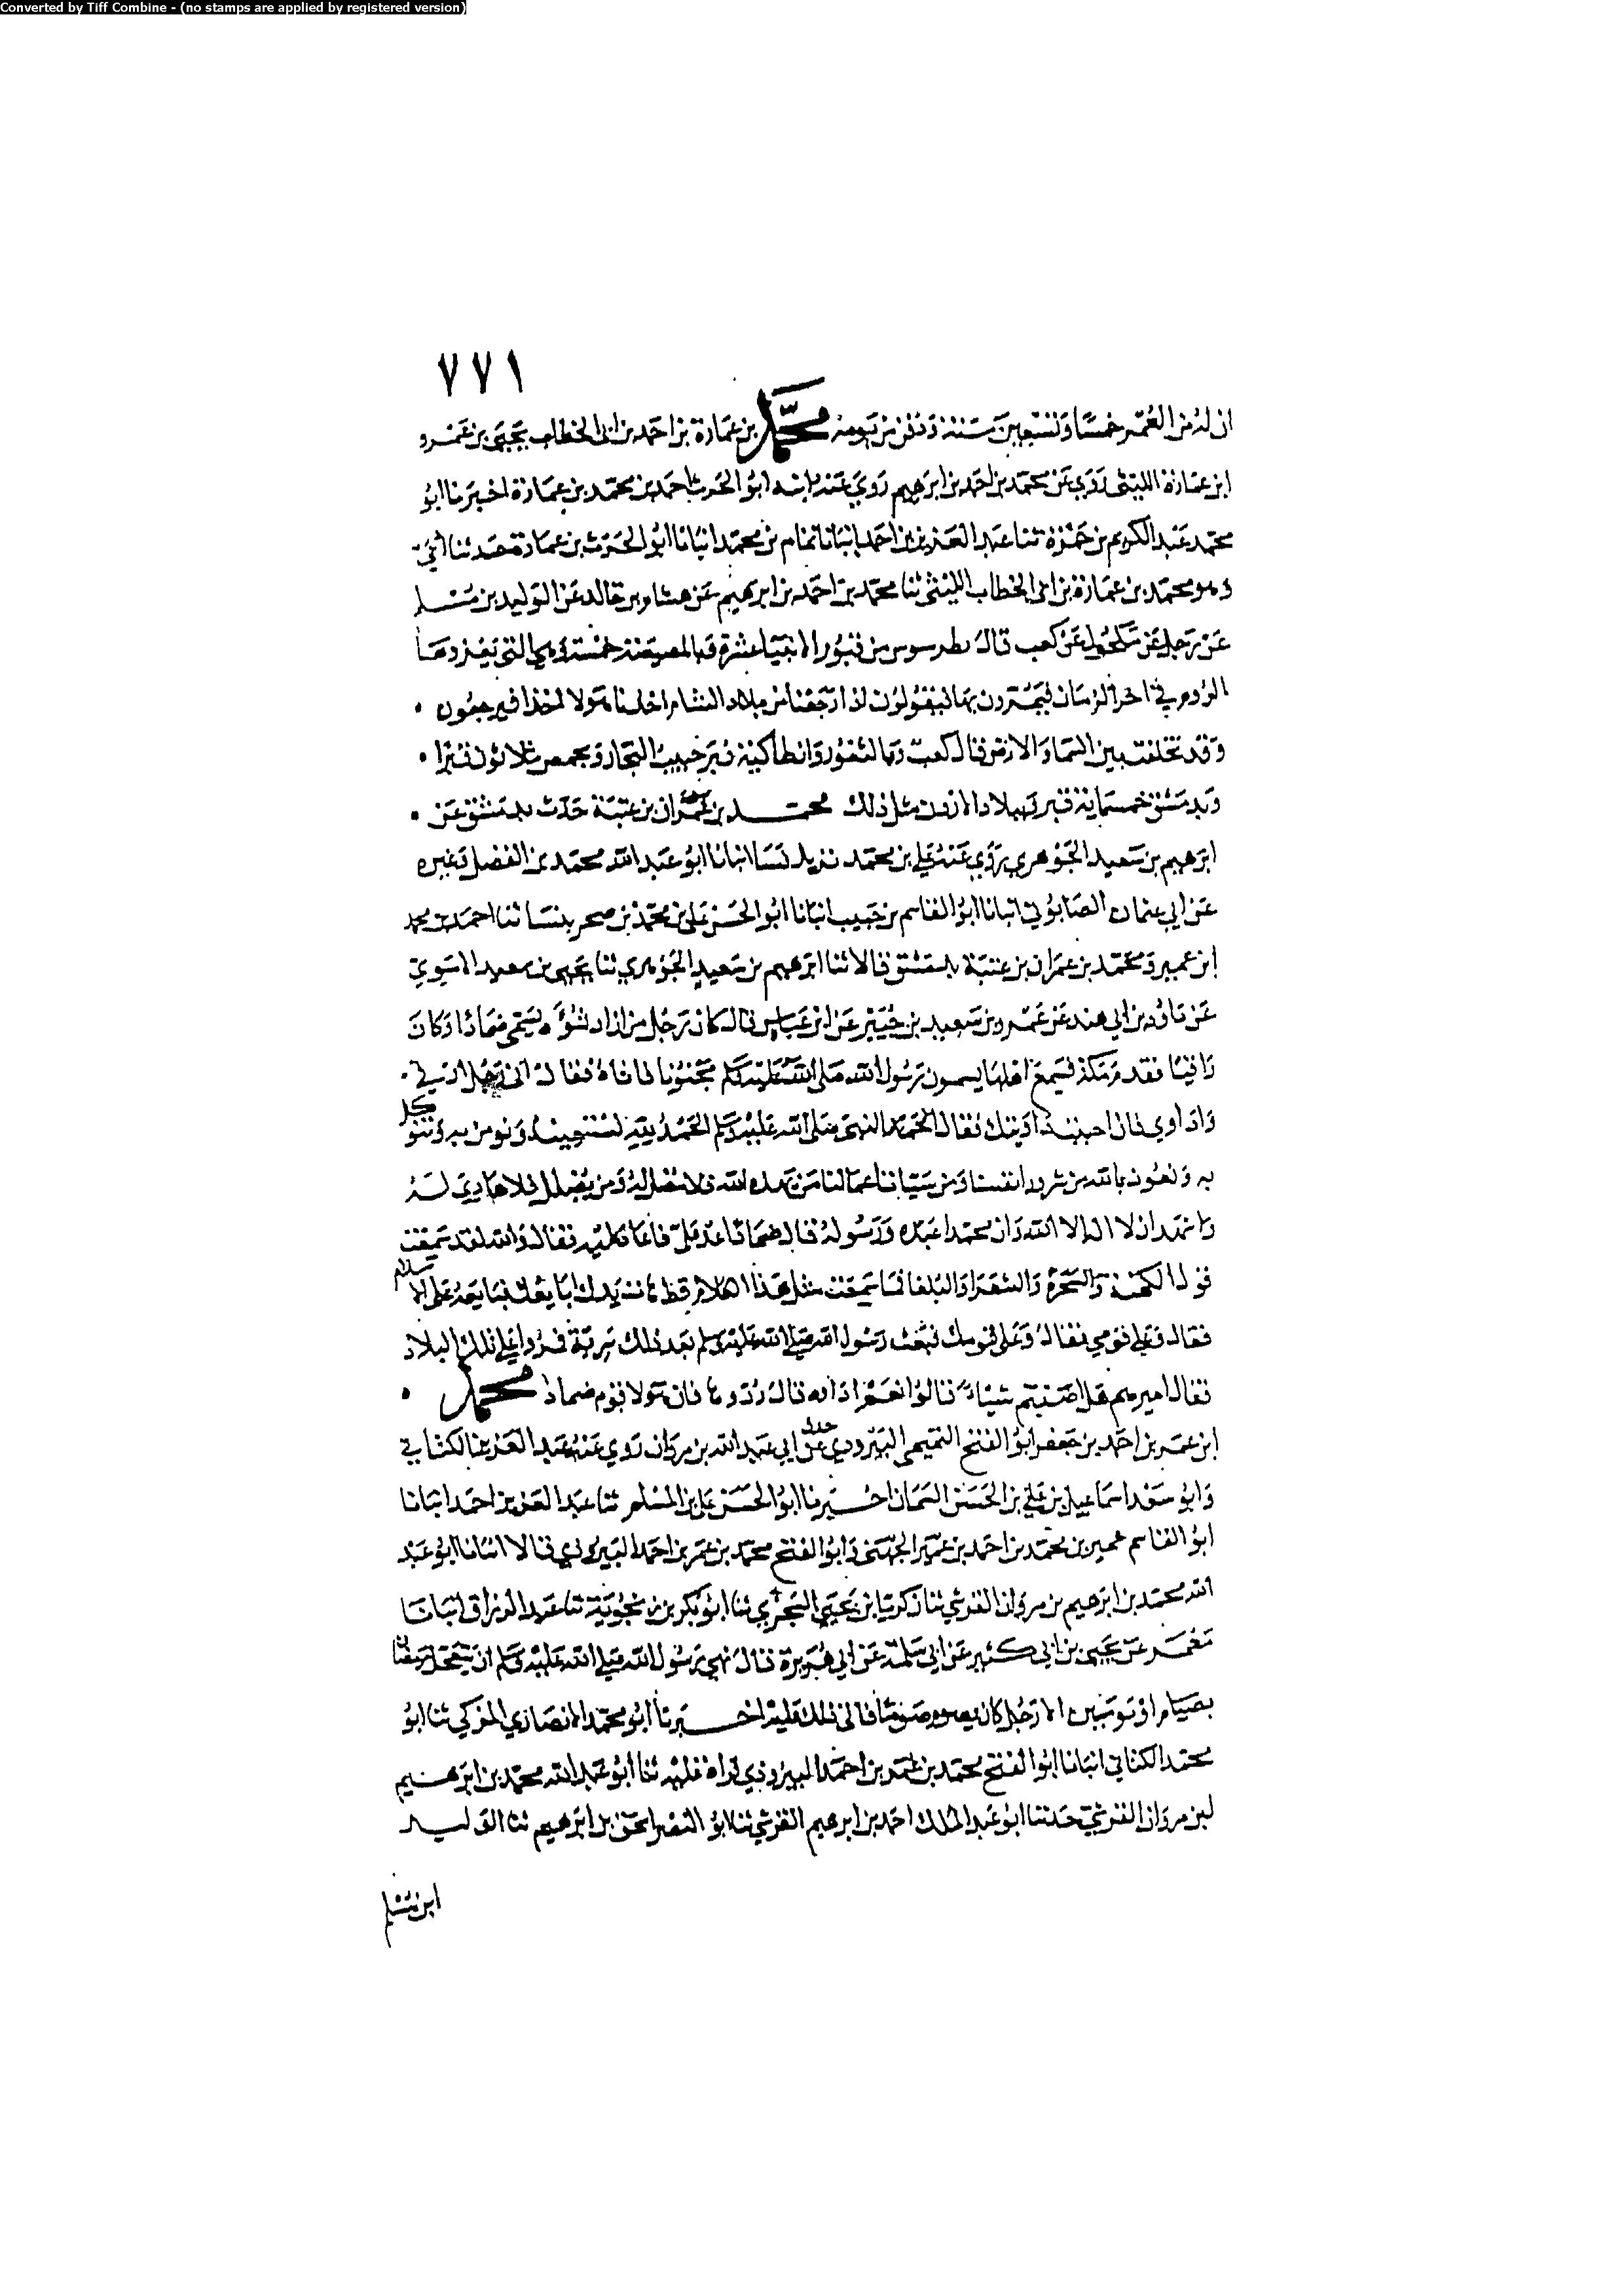 Converted by Tiff Combine - (no stamps are applied by registered version)
٧٧١
ان له من العمر خمسا وتسعين سنة ودفن من يومه محمد بن عمارة بن احمد بن ابى الخطاب يحيى بن عمرو
ابن عمارة الليثى روى عن محمد بن احمد بن ابرهيم روى عنه ابنه ابو الحرث احمد بن محمد بن عمارة اخبرنا ابو
محمد عبد الكريم بن حمزة ثنا عبد العزيز بن احمد انبانا تمام بن محمد انبانا ابو الحرث بن عمارة حدثنا ابى
وهو محمد بن عمارة بن ابى الخطاب الليثى ثنا محمد بن احمد بن ابرهيم عن هشام بن خالد عن الوليد بن مسلم
عن رجل عن مكحول عن كعب قال بطرسوس من قبور الانبيا عشرة وبالمصيصة خمسة وهي التي يغزوها
الروم في اخر الزمان فيمرون بها فيقولون اذا رجعنا من بلاد الشام اخذنا هولا اخذا فيرجعون
وقد تحلقت بين السما والارض قال كعب وبالثغور وانطاكية قبر حبيب النجار وبحمص ثلاثون قبرا
وبدمشق خمسماية قبر وببلاد الاردن مثل ذلك محمد بن عمران بن عتبة حدث بدمشق عن
ابرهيم بن سعيد الجوهري روى عنه علي بن محمد نزيل نسا انبانا ابو عبد الله محمد بن الفضل وغيره
عن ابي عثمان الصابوني انبانا ابو القاسم بن حبيب انبانا ابو الحسن على بن محمد بن صحر بنسا ثنا احمد بن محمد
ابن عمير ومحمد بن عمران بن عتبة بدمشق قالا ثنا ابرهيم بن سعيد الجوهري ثنا يحيى بن سعيد الاموي
عن داود بن ابي هند عن عمرو بن سعيد بن جبير عن ابن عباس قال كان رجل من ازد شنوه يسمى ضمادا وكان
راقيا فقدم مكة فسمع اهلها يسمون رسول الله صلى الله عليه وسلم مجنونا فاتاه فقال انى رجل ارقي
واداوي فان احببت داويتك فقال النبي صلى الله عليه وسلم الحمد لله نستعينه ونومن به ونتوكل
به ونعوذ بالله من شرور انفسنا ومن سيات اعمالنا من يهده الله فلا مضل له ومن يضلل فلا هادي له
واشهد ان لا اله الا الله وان محمدا عبده ورسوله قال ضماد اعد على فاعاد عليه فقال والله لقد سمعت
قول الكهنة والسحرة والشعرا والبلغا فما سمعت مثل هذا الكلام قط هات يدك ابايعك فبايعه على الاسلام
فقال وعلى قومي فقال وعلى قومك فبعث رسول الله صلى الله عليه وسلم بعد ذلك سرية فمروا على تلك البلاد
فقال اميرهم هل اصبتم شيئا قالوا نعم اداوه قال ردوها فان هولا قوم ضماد محمد
ابن عمر بن احمد بن جعفر ابو الفتح التميمى البيرودى حدث عن ابي عبد الله بن مروان روى عنه عبد العزيز الكتاني
وابو سعد اسماعيل بن علي بن الحسن السمان اخبرنا ابو الحسن على بن المسلم ثنا عبد العزيز بن احمد انبانا
ابو القاسم عمير بن محمد بن احمد بن عمير الجهنى وابو الفتح محمد بن عمر بن احمد البيرودي قالا انبانا ابو عبد
الله محمد بن ابرهيم بن مروان القرشي ثنا زكريا بن يحيى السجزي ثنا ابو بكر بن زنجوية ثنا عبد الرزاق انبانا
معمر عن يحيى بن ابي كثير عن ابي سلمة عن ابي هريرة قال نهى رسول الله صلى الله عليه وسلم ان يتعجل رمضان
بصيام او يومين الا رجل كان يصوم صوما فاتى ذلك عليه اخبرنا ابو محمد الانصاري المزكي ثنا ابو
محمد الكتاني انبانا ابو الفتح محمد بن عمر بن احمد البيرودي قراة عليه ثنا ابو عبد الله محمد بن ابرهيم
ابن مروان القرشي حدثنا ابو عبد الملك احمد بن ابرهيم القرشي ثنا ابو النضر اسحق بن ابرهيم ثنا الوليد
ابن مسلم